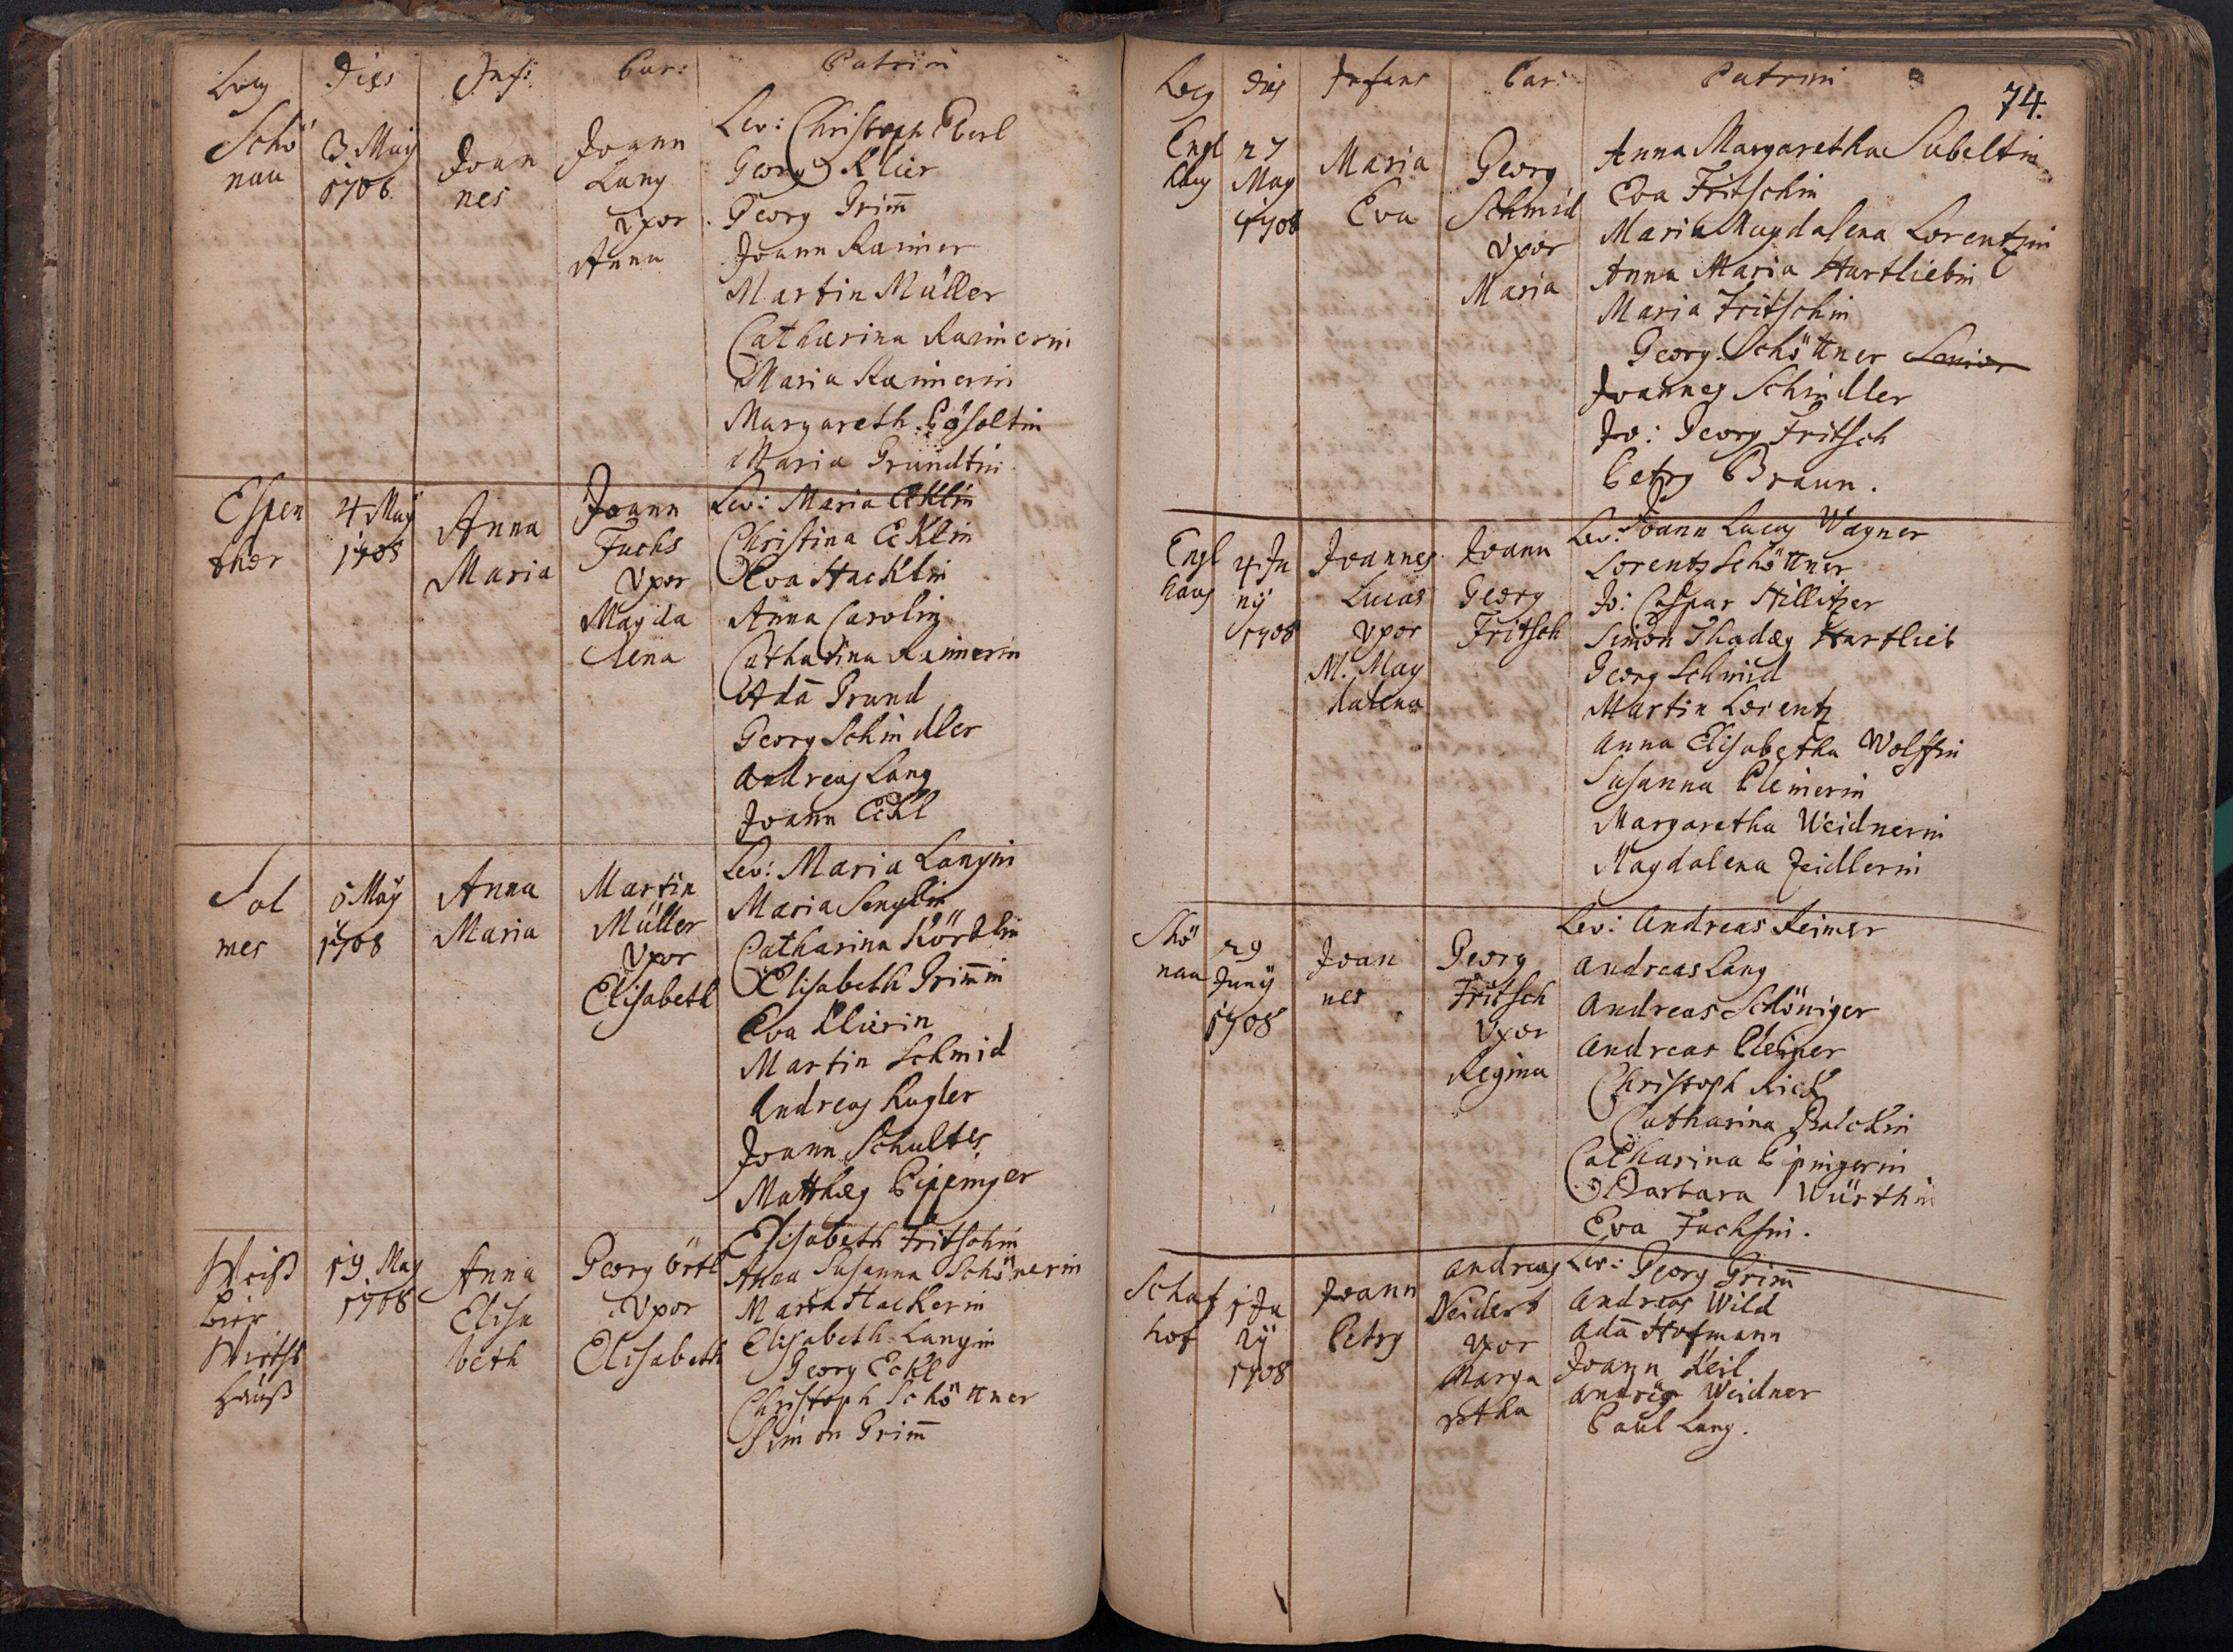 Locg Dies Inf: Par: Patrini
Schö
nau
3 Maÿ
1708
Joan
nes
Joann
Lang
Vxor
Anna
Lev: Christoph Eberl
Georg Klier
Georg Grim̄
Joann Raimer
Martin Müller
Catharina Raimerin
Maria Raimerin
Margareth. Pösoltin
Maria Grundtin
Espen
thor
4 Maÿ
1708
Anna
Maria
Joann
Fuchs
Vxor
Magda
lena
Lev: Maria Eklin
Christina Ecklin
Eva Hacklin
Anna Carolin
Catharina Raimerin
Adā Grund
Georg Schindler
Andreas Lang
Joann Eckl
Sol
mes
6 Maÿ
1708
Anna
Maria
Martin
Müller
Vxor
Elisabeth
Lev: Maria Langin
Maria Senglin
Catharina Kördlin
Elisabeth Grim̄in
Eva Klierin
Martin Schmid
Andreas Kugler
Joann Schultes
Matthæg Pippinger
Weiß
bier
Wirths
Hauß
19 May
1708
Anna
Elisa
beth
Georg Örtl
Vxor
Elisabeth
Elisabeth Fritschin
Anna Susanna Schönerin
Maria Hackerin
Elisabeth Langin
Georg Eckl
Christoph Schöttner
Simon Grim̄
74.
Locg dies Infans Par: Patrini
Engl
haus
27
May
1708
Maria
Eva
Georg
Schmid
Vxor
Maria
Anna Margaretha Sabeltin
Eva Fritschin
Maria Magdalena Lorentzin
Anna Maria Hartliebin
Maria Fritschin
Georg Schöttner Senior
Joannes Schindler
Jo: Georg Fritsch
Petrg Braun.
Engl
haus
4 Ju
nÿ
1708
Joannes
Lucas
Vxor
M. Mag
dalena
Joann
Georg
Fritsch
Lev: Joann Lucas Wagner
Lorentz Schöttner
Jo: Caspar Hillitzer
Simon Thadæg Hartlieb
Georg Schmid
Martin Lorentz
Anna Elisabetha Wolffin
Susanna Pleinerin
Margaretha Weidnerin
Magdalena Zeidlerin
Schö
nau
29
Junÿ
1708
Joan
nes
Georg
Fritsch
Vxor
Regina
Lev: Andreas Reimer
Andreas Lang
Andreas Schöniger
Andreas Pleiner
Christoph Rick
Catharina Balckin
Catharina Pipingerin
Barbara Würthin
Eva Fuchsin.
Schaf
hof
1 Ju
lÿ
1708
Joann
Petrg
Andreas
Neidert
Vxor
Marga
retha
Lev: Georg Grim̄
Andreas Wild
Adā Hofmann
Joann Keil
Andreas Weidner
Paul Lang.